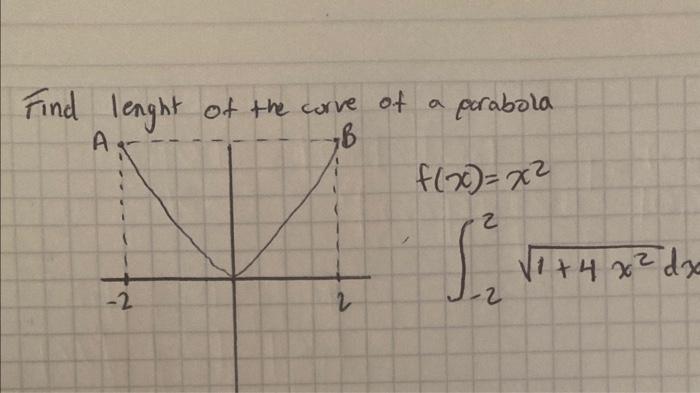 Find lenght of the curve of a parabola
A B
f(x) = x²
∫₋₂² √1 + 4x² dx
-2 2